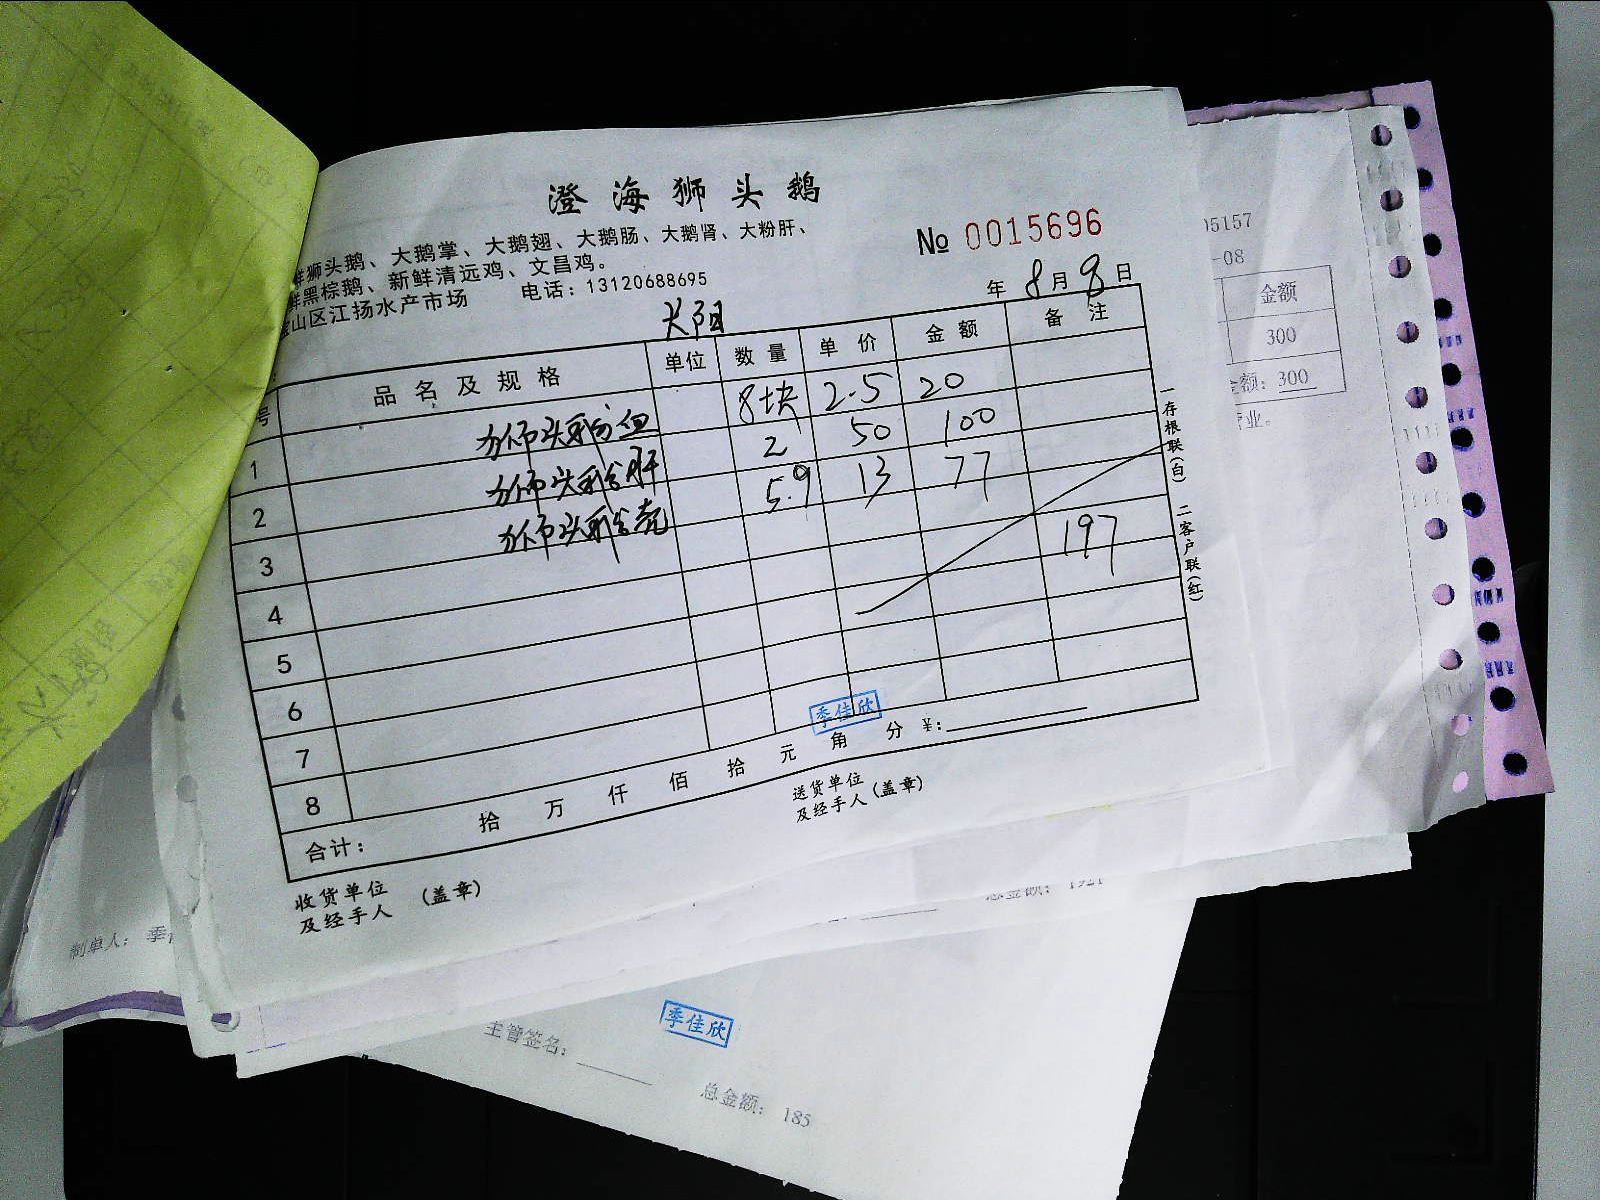 澄海狮头鹅
鲜狮头鹅、大鹅掌、大鹅翅、大鹅肠、大鹅肾、大粉肝、
鲜黑棕鹅、新鲜清远鸡、文昌鸡。
宝山区江扬水产市场 电话：13120688695
№ 0015696
年 8月8日
大阳
号 品名及规格 单位 数量 单价 金额 备注
1 狮头鹅血 8块 2.5 20
2 狮头鹅肝 2 50 100
3 狮头鹅壳 5.9 13 77
4 197
5
6
7
8
合计： 拾 万 仟 佰 拾 元 角 分 ¥:
季佳欣
收货单位
及经手人 (盖章)
送货单位
及经手人 (盖章)
一存根联(白) 二客户联(红)
05157
-08
金额
300
金额: 300
业。
制单人： 季
总金额: 1921
季佳欣
主管签名:
总金额: 185